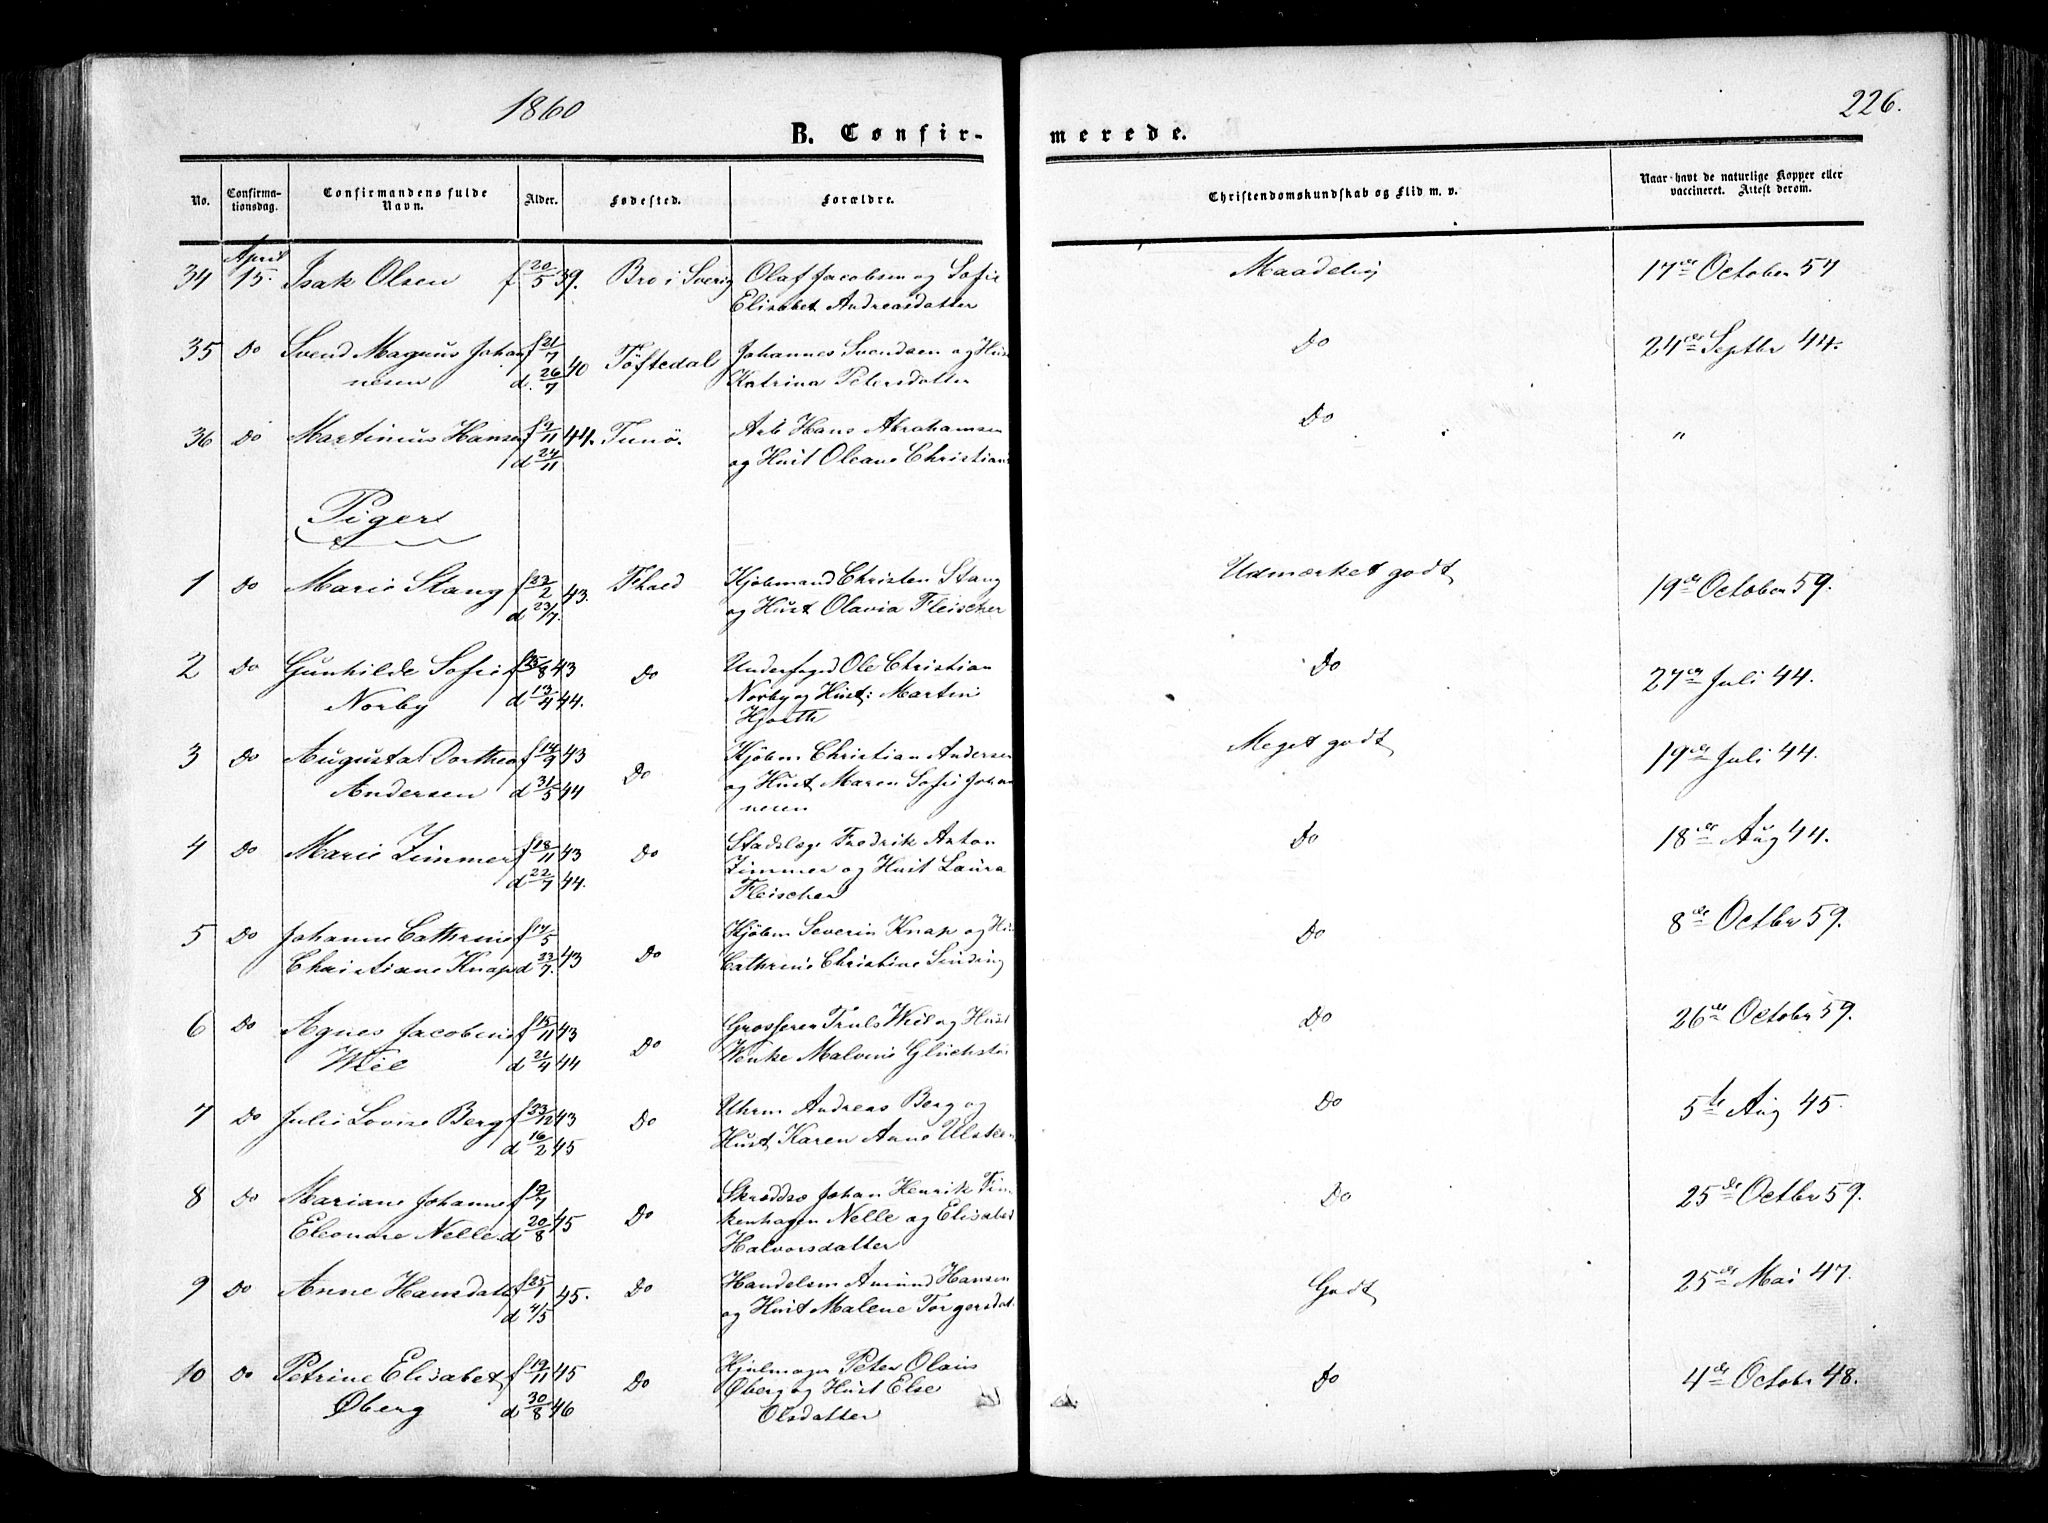 1860
226.
B. Confir-
merede.
No.
Confirma-
tionsdag.
Confirmandens fulde
Navn.
Alder.
Fødested.
Forældre.
Christendomskundskab og Flid m. v.
Naar havt de naturlige Kopper eller
vaccineret. Attest derom.
April
34 15. Isak Olsen f 20/5 39. Bro i Sverig Olaf Jacobsen og Sofie Maadelig 17de October 57
Elisabet Andreasdatter
35 Do Svend Magnus Johan f 21/7 40 Töftedal Johannes Svendsen og Hus Do 24de Septbr 44.
nesen d. 26/7 Katrina Petersdatter
36 Do Martinius Hansen 11 44. Tunö. Arb Hans Abrahamsen Do "
d 24/11 og Hust Oleane Christians
Piger
1 Do Marie Stang f 23/2 43. Fhald Kjøbmand Christen Stang Udmærket godt 19de October 59.
d 23/7. og Hust Olavia Fleischer
2 Do Gunhilde Sofie f 25/8 43 Do Underfoged Ole Christian Do 27de Juli 44.
Norby d 13/4 44. Norby og Hust: Martin
Hjorth
3 Do Augusta Dorthea 43 Do Kjöbm Christian Andersen Meget godt 19de Juli 44.
Andersen d 31/5 44 og Hust Maren Sofie Johan
nesen
4 Do Marie Zimmer f 18/11 43 Do Stadslæge Fredrik Anton Do 18de Aug 44.
d 22/7 44. Zimmer og Hust Laura
Fleischer
5 Do Johanne Cathrine f 17/5 Do Kjöbm Severin Knap og Hu Do 8de Octbr 59.
Christiane Knap d 23/7. 43 Cathrine Christine Sinding
6 Do Agnes Jacobine f 15/11 43 Do Grosserer Truls Wiel og Hust Do 26de October 59.
Wiel d 21/4 44 Wenke Malvine Glückstä
7 Do Julie Lovise Berg f 23/12 43 Do Uhrm Andreas Berg og Do 5te Aug 45.
d 16/2 45 Hust Karen Anne
8 Do Mariane Johanne f 12/7 Do Skrædds Johan Henrik Fin Do 25de Octbr 59.
Eleonore Nelle d 20/8 45 kenhagen Nelle og Elisabed
Halvorsdatter
9 Do Anne Hansdatt f 25/1 45. Do Handelsm Amund Hansen Godt 25de Mai 47.
d 4/5 og Hust Malene Torgersdat
10 Do Petrine Elisabet f 19/11 45 Do Hjulmager Peter Olaus Do 4de October 48.
Øberg d 30/8 46 Øberg og Hust Else
Olsdatter